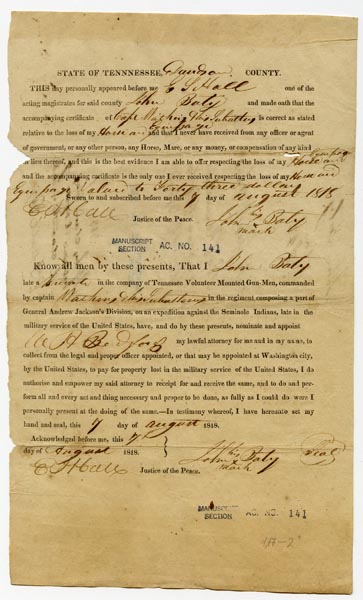 STATE OF TENNNESSEE, Davidson COUNTY.
THIS day personally appeared before me E S Hall one of the
acting magistrates for said county John Baty and made oath that the
accompanying certificate of Capt is correct as stated
relative to the loss of my Horse and Equipage that I never have received from any officer or agent
of government, or any other person, any Horse, Mare, or any money, or compensation of any kind
in lieu thereof, and this is the best evidence I am able to offer respecting the loss of my Horse and
and the accompanying certificate is the only one I ever received respecting the loss of my Horse and
Equipage valued to Forty three dollars
Sworn to and subscribed before me this 7 day of august 1818
E S Hall Justice of the Peace. John Baty
mark
MANUSCRIPT
SECTION AC. NO. 141
Know all men by these presents, That I John Baty
late a private in the company of Tennessee Volunteer Mounted Gun-Men, commanded
by captain in the regiment composing a part of
General Andrew Jackson's Division, on an expedition against the Seminole Indians, late in the
military service of the United States, have, and do by these presents, nominate and appoint
W H Bedford my lawful attorney for me and in my name, to
collect from the legal and proper officer appointed, or that may be appointed at Washington city,
by the United States, to pay for property lost in the military service of the United States, I do
authorise and empower my said attorney to receipt for and receive the same, and to do and per-
form all and every act and thing necessary and proper to be done, as fully as I could do were I
personally present at the doing of the same.—In testimony whereof, I have hereunto set my
hand and seal, this 7 day of august 1818.
Acknowledged before me, this 7
day of August 1818. John Baty Seal
mark
E S Hall Justice of the Peace.
MANUSCRIPT
SECTION AC. NO. 141